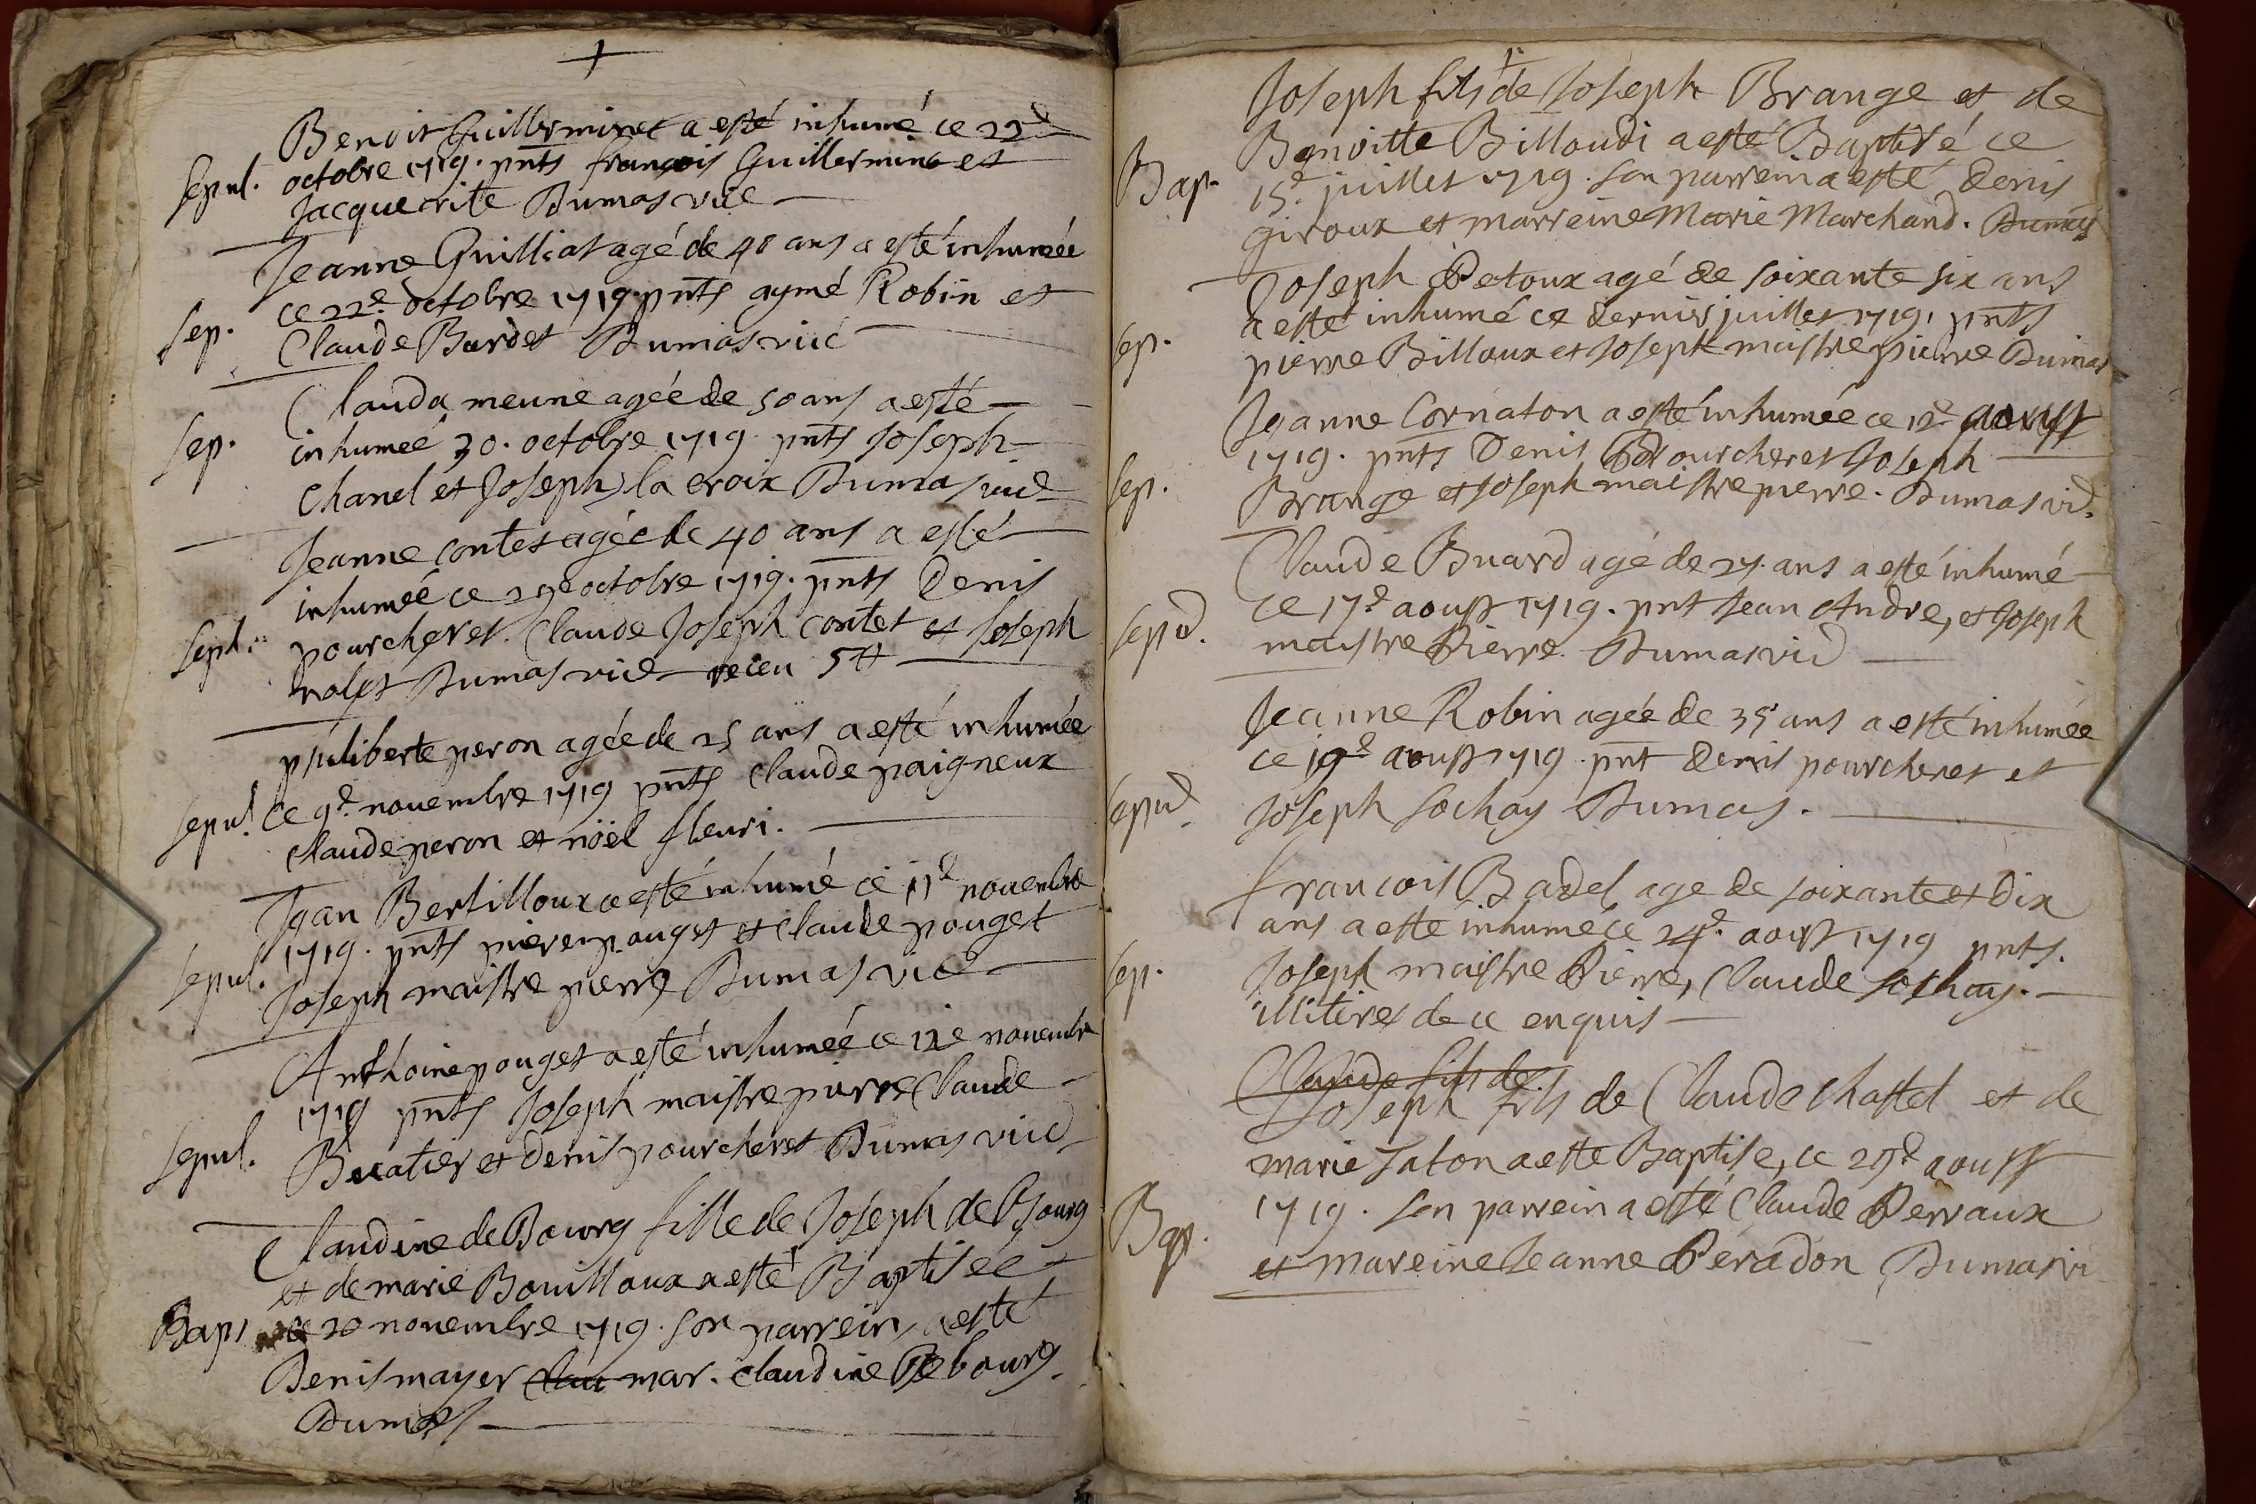 Benoit Guillerminet a esté inhumé ce 22e
Sepul. octobre 1719. pnts françois Guillermine et
Jacque crite Dumas vic
Jeanne Guilliat agé de 40 ans a esté inhumée
Sep. ce 22e octobre 1719. pnts aymé Robin et
Claude Burdet Dumas vic
Clauda meune agée de 50 ans a esté
Sep. inhumeé 30. octobre 1719. pnts Joseph
Chanel et Joseph la croix Dumas vic
Jeanne contet agée de 40 ans a esté
inhumeé ce octobre 1719. pnts Denis
Seph. pourcheret. Claude Joseph contet et Joseph
Dumas vic receu 5
philiberte peron agée de 25 ans a esté inhumée
Sepul. ce 9e novembre 1719 pnts Claude paigneux
Claude peron et nöel fleuri.
Jean Bertilloux a esté inhumé ce 11e novembre
Sepul. 1719. pnts pierre pouget et Claude pouget
Joseph maistre pierre Dumas vic
Anthoine pouget a esté inhumeé ce 12e novembre
1719 pnts Joseph maistre pierre Claude
Sepul. Bucatier et Denis pourcheret Dumas vic
Claudine de Bourg fille de Joseph de Bourg
et de marie Bouilloux a esté Baptisée
Bap. ce 20 novembre 1719. son parrein, a esté
Denis mayer Clau mar. Claudine De bourg.
Dumas
Joseph fils de Joseph Brange et de
Benoitte Billoudi a esté Baptisé ce
Bap. 15e juillet 1719. son parrein a esté Denis
Giroux et marreine Marie Marchand. Dumas
Joseph Petoux agé de soixante six ans
a esté inhumé ce dernier juillet 1719, pnts
Sep. pierre Billoux et Joseph maistre pierre Dumas
Jeanne Cornaton a esté inhumée ce 12e aoust
1719. pnts Denis Pourcheret Joseph
Sep. Brange et Joseph maistre pierre. Dumas vic.
Claude Buard agé de 27. ans a esté inhumé
ce 17e aoust 1719. pnt Jean Andre, et Joseph
Sepul. maistre Pierre. Dumas vic
Jeanne Robin agée de 35 ans a esté inhumée
ce 19e aoust 1719. pnt Denis pourcheret et
Sepul. Joseph Sochay Dumas.
francois Badel agé de soixante et Dix
ans a esté inhumé ce 24e. aoust 1719 pnts.
Sep. Joseph maistre Pierre, Claude Sochay.
illiteres de ce enquis
Claude fils de
Joseph fils de Claude Chastel et de
marie Taton a esté Baptisé, ce 29e aoust
Bap. 1719. son parrein a esté Claude Perraux
et mareine Jeanne Peradon Dumas vi